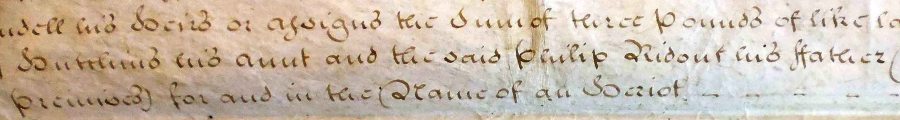 his Heirs or assigns the Sum of three Pounds of like
his Aunt and the said Philip Ridout his ffather (
premises) for and in the Name of an Heriot. – – – – –